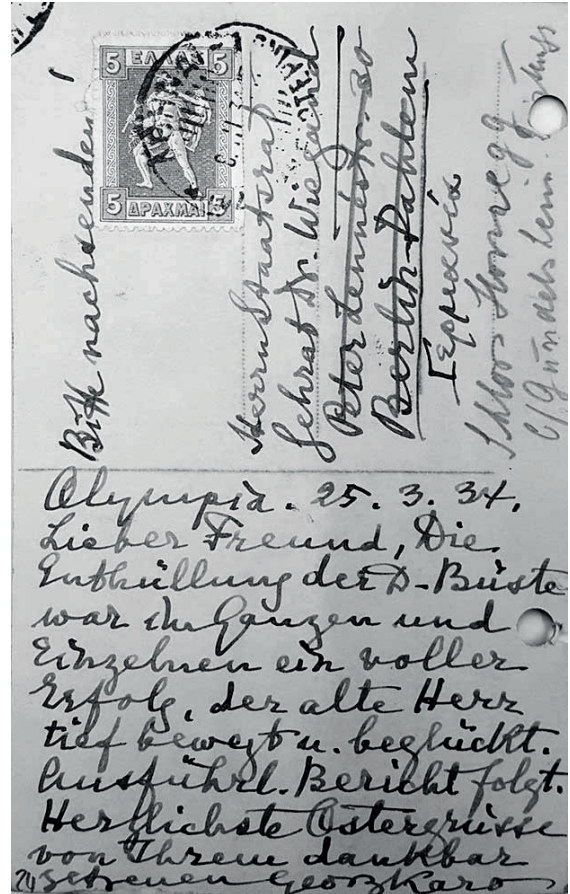 5 ΕΛΛΑΣ 5
5 ΔΡΑΧΜΑΙ 5
Bitte nachsenden!
Herrn Staatsrat
Gehrat Dr. Wiegand
Peter Lennéstr. 30
Berlin-Dahlem
Γερμανία
Schloss Hornegg
b/Gundelsheim
Olympia. 25. 3. 34.
Lieber Freund, Die
Enthüllung der D-Büste
war im Ganzen und
Einzelnen ein voller
Erfolg, der alte Herr
tief bewegt u. beglückt.
Ausführl. Bericht folgt.
Herzlichste Ostergrüsse
von Ihrem dankbar
getreuen Georg Karo